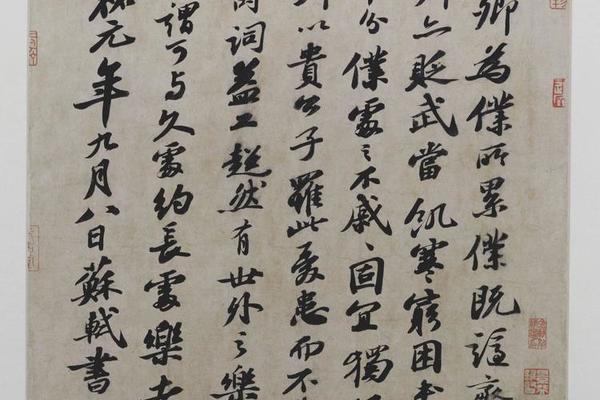 卿為僕所累僕既謫齊
亦貶武當飢寒窮困本
分僕處之不戚戚固宜獨
以貴公子罹此憂患而不
詞益工超然有世外之樂
謂可与久處約長處樂者
祐元年九月八日蘇軾書